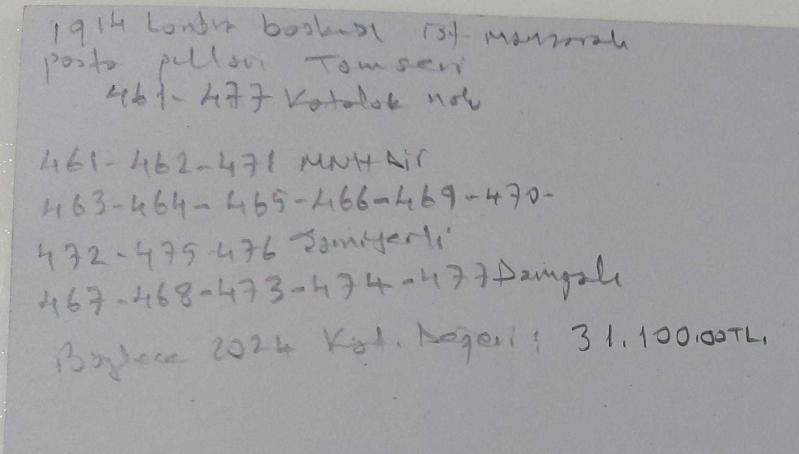 1914 Londra baskısı ist manzaralı
posta pulları Tam seri
461-477 Katalok nolu
461-462-471 MNH dir
463-464-465-466-469-470-
472-475-476 Şarniyerli
467-468-473-474-477 Damgalı
Böylece 2024 Kat. Değeri: 31.100.00TL.